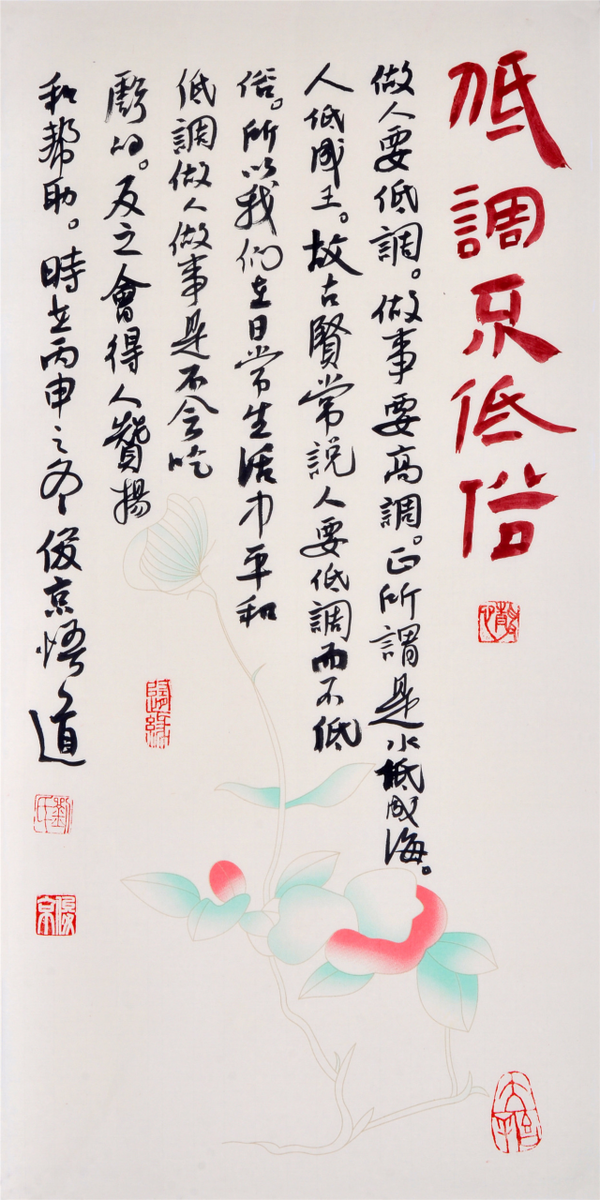 低調不低俗
做人要低調。做事要高調。正所謂是水低成海。
人低成王。故古賢常說人要低調而不低
俗。所以我們在日常生活中平和
低調做人做事是不会吃
虧的。反之會得人贊揚
和幫助。時在丙申之冬俊京悟道
隨緣
劉氏
俊京